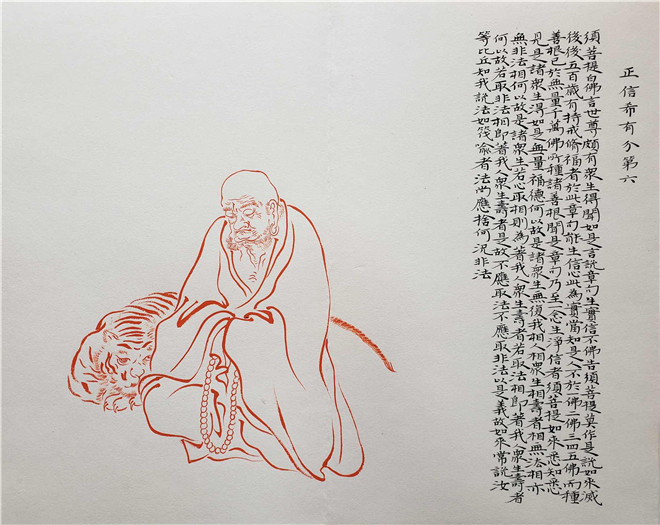 正信希有分第六
須菩提白佛言世尊頗有衆生得聞如是言說章句生實信不佛告須菩提莫作是說如來滅
後後五百歲有持戒脩福者於此章句能生信心此為實當知是人不於一佛二佛三四五佛而種
善根已於無量千萬佛所種諸善根聞是章句乃至一念生淨信者須菩提如來悉知悉
見是諸衆生得如是無量福德何以故是諸衆生無復我相人相衆生相壽者相無法相亦
無非法相何以故是諸衆生若心取相則為著我人衆生壽者若取法相即著我人衆生壽者
何以故若取非法相即著我人衆生壽者是故不應取法不應取非法以是義故如來常說汝
等比丘知我說法如筏喻者法尚應捨何況非法